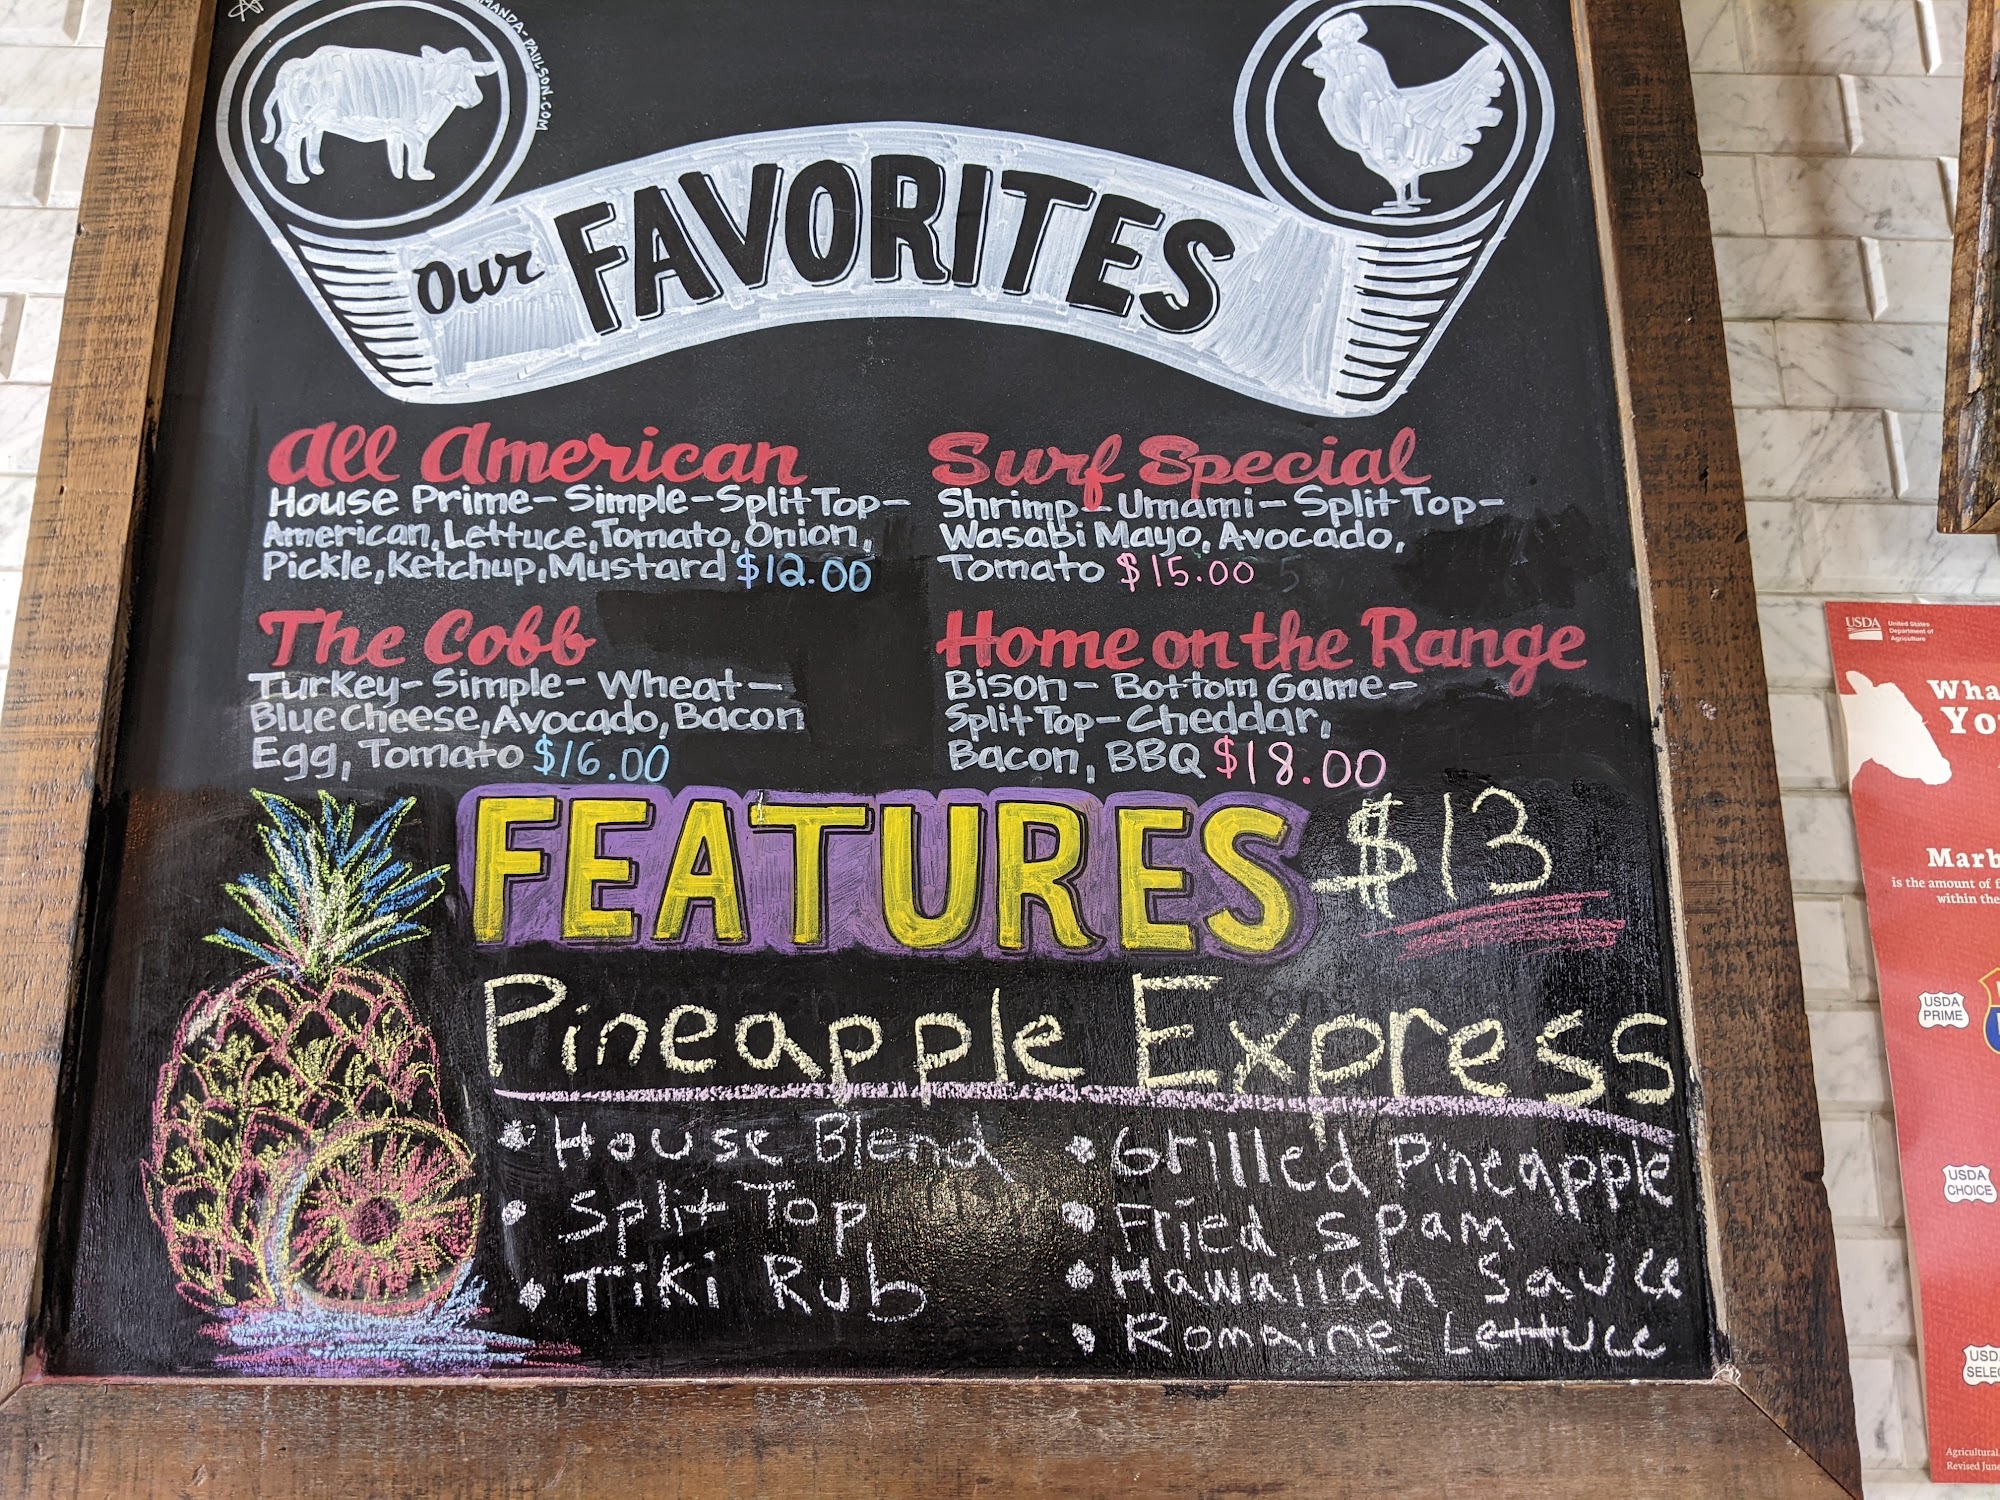 MANDA-PAULSON.COM
Our FAVORITES
All American
House Prime-Simple-Split Top-
American, Lettuce, Tomato, Onion,
Pickle, Ketchup, Mustard $12.00
Surf Special
Shrimp-Umami-Split Top-
Wasabi Mayo, Avocado,
Tomato $15.00
The Cobb
Turkey-Simple-Wheat-
Blue Cheese, Avocado, Bacon
Egg, Tomato $16.00
Home on the Range
Bison-Bottom Game-
Split Top-Cheddar,
Bacon, BBQ $18.00
FEATURES $13
Pineapple Express
• House Blend
• Split Top
• Tiki Rub
• Grilled Pineapple
• Fried Spam
• Hawaiian Sauce
• Romaine Lettuce
USDA
United States
Department of
Agriculture
is the amount of
within the
USDA
PRIME
USDA
CHOICE
Agricultural
Revised June